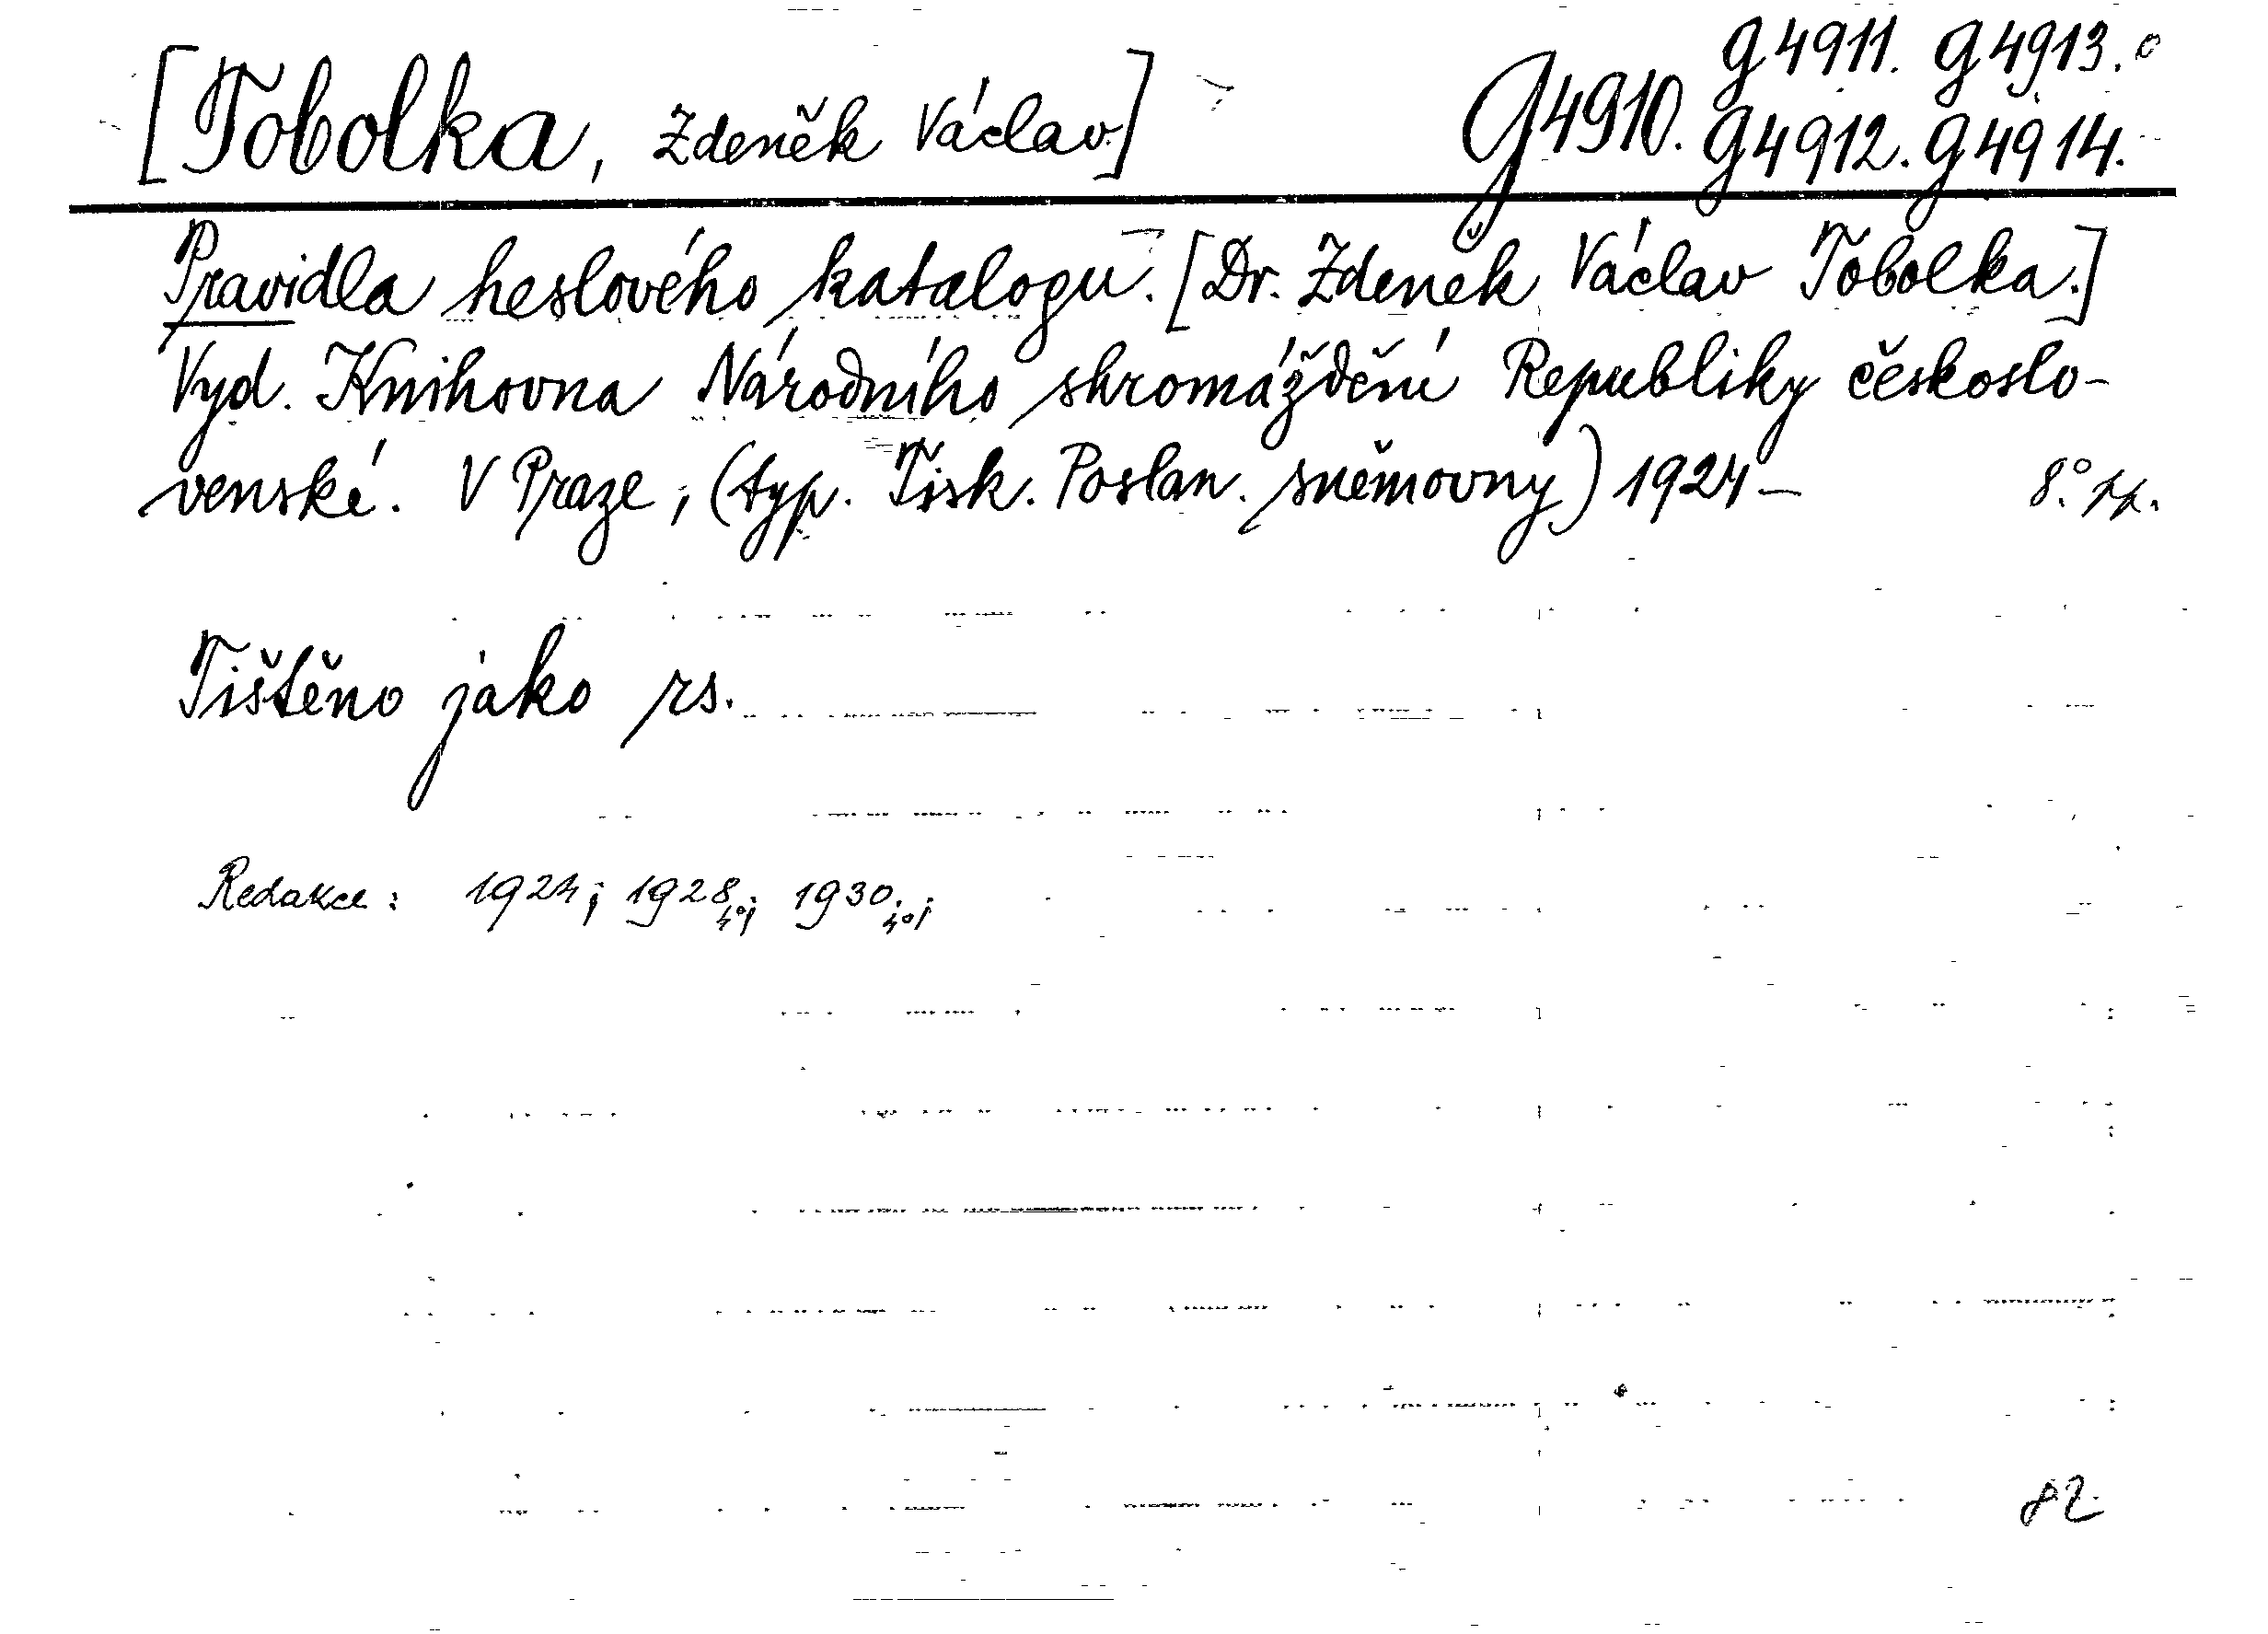 [Tobolka, Zdeněk Václav.]
g4910. g4911. g4913.
g4912. g4914.
Pravidla heslového katalogu. [Dr. Zdeněk Václav Tobolka.]
Vyd. Knihovna Národního shromáždění Republiky českoslo-
venské. V Praze, (typ. Tisk. Poslan. sněmovny) 1924 – 8.° pp.
Tištěno jako rs.
Redakce: 1924; 1928 4°; 1930. 4°;